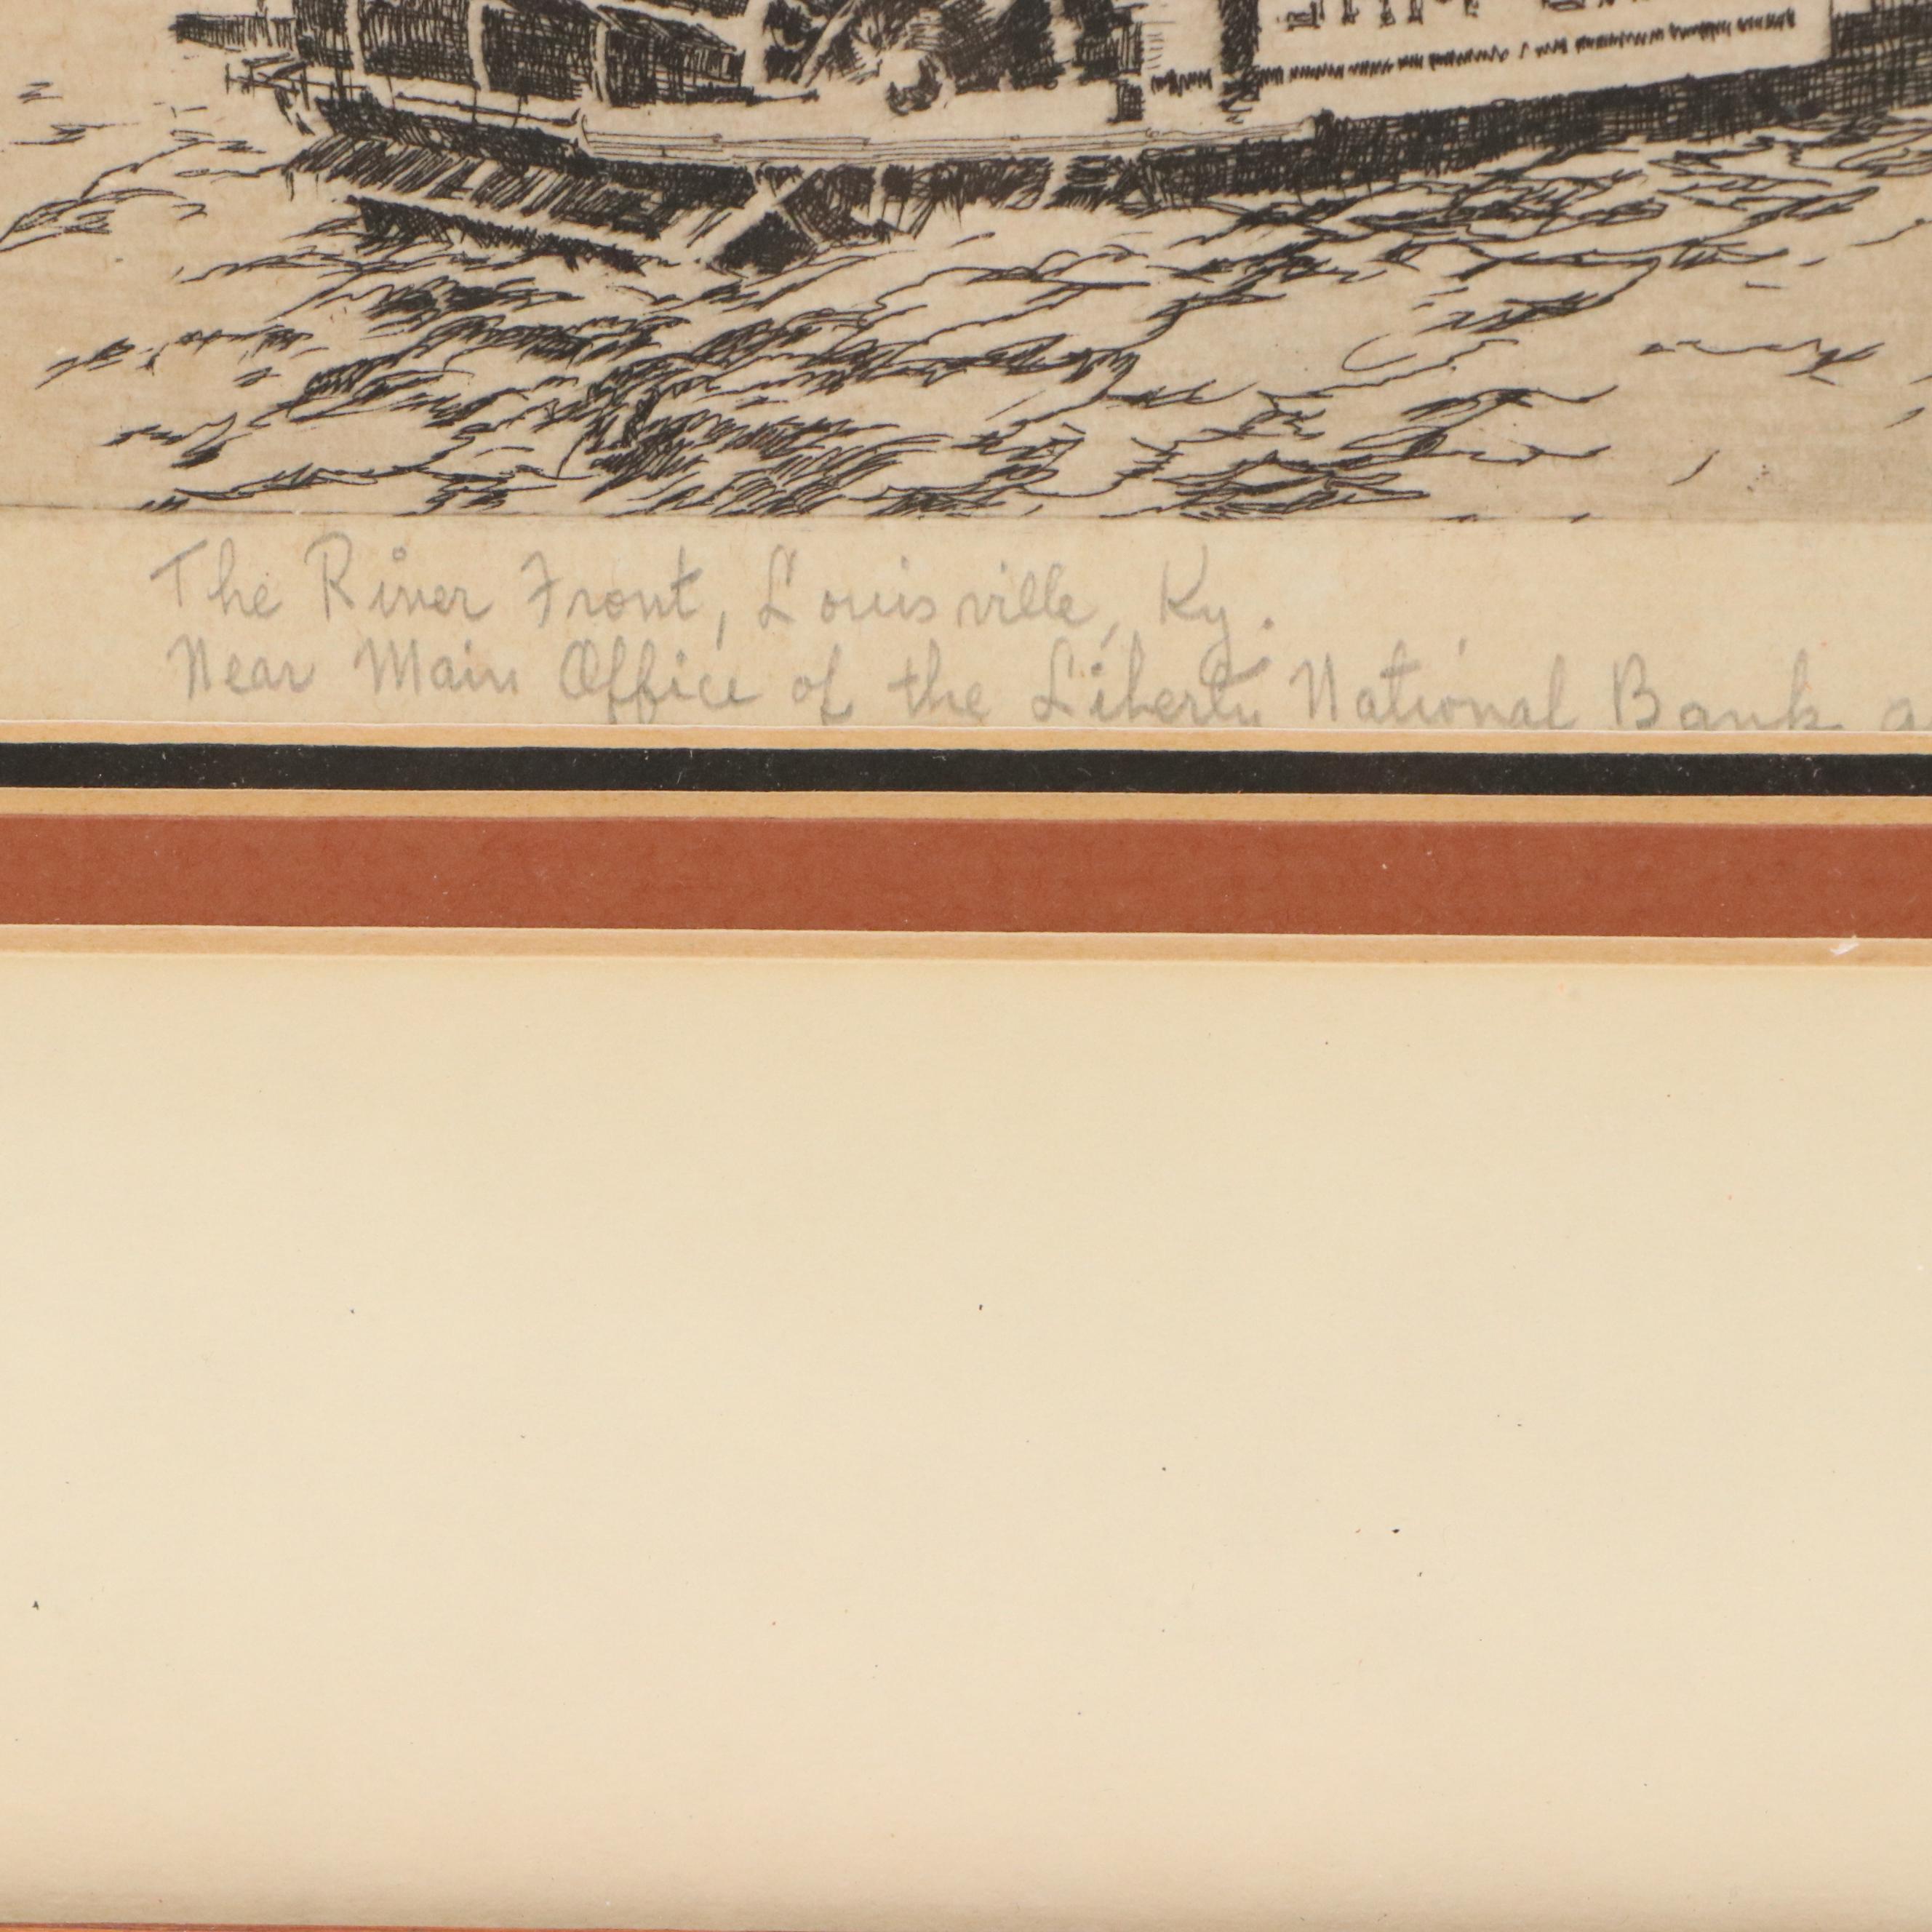 The River Front, Louisville, Ky.
Near Main Office of the Liberty National Bank a